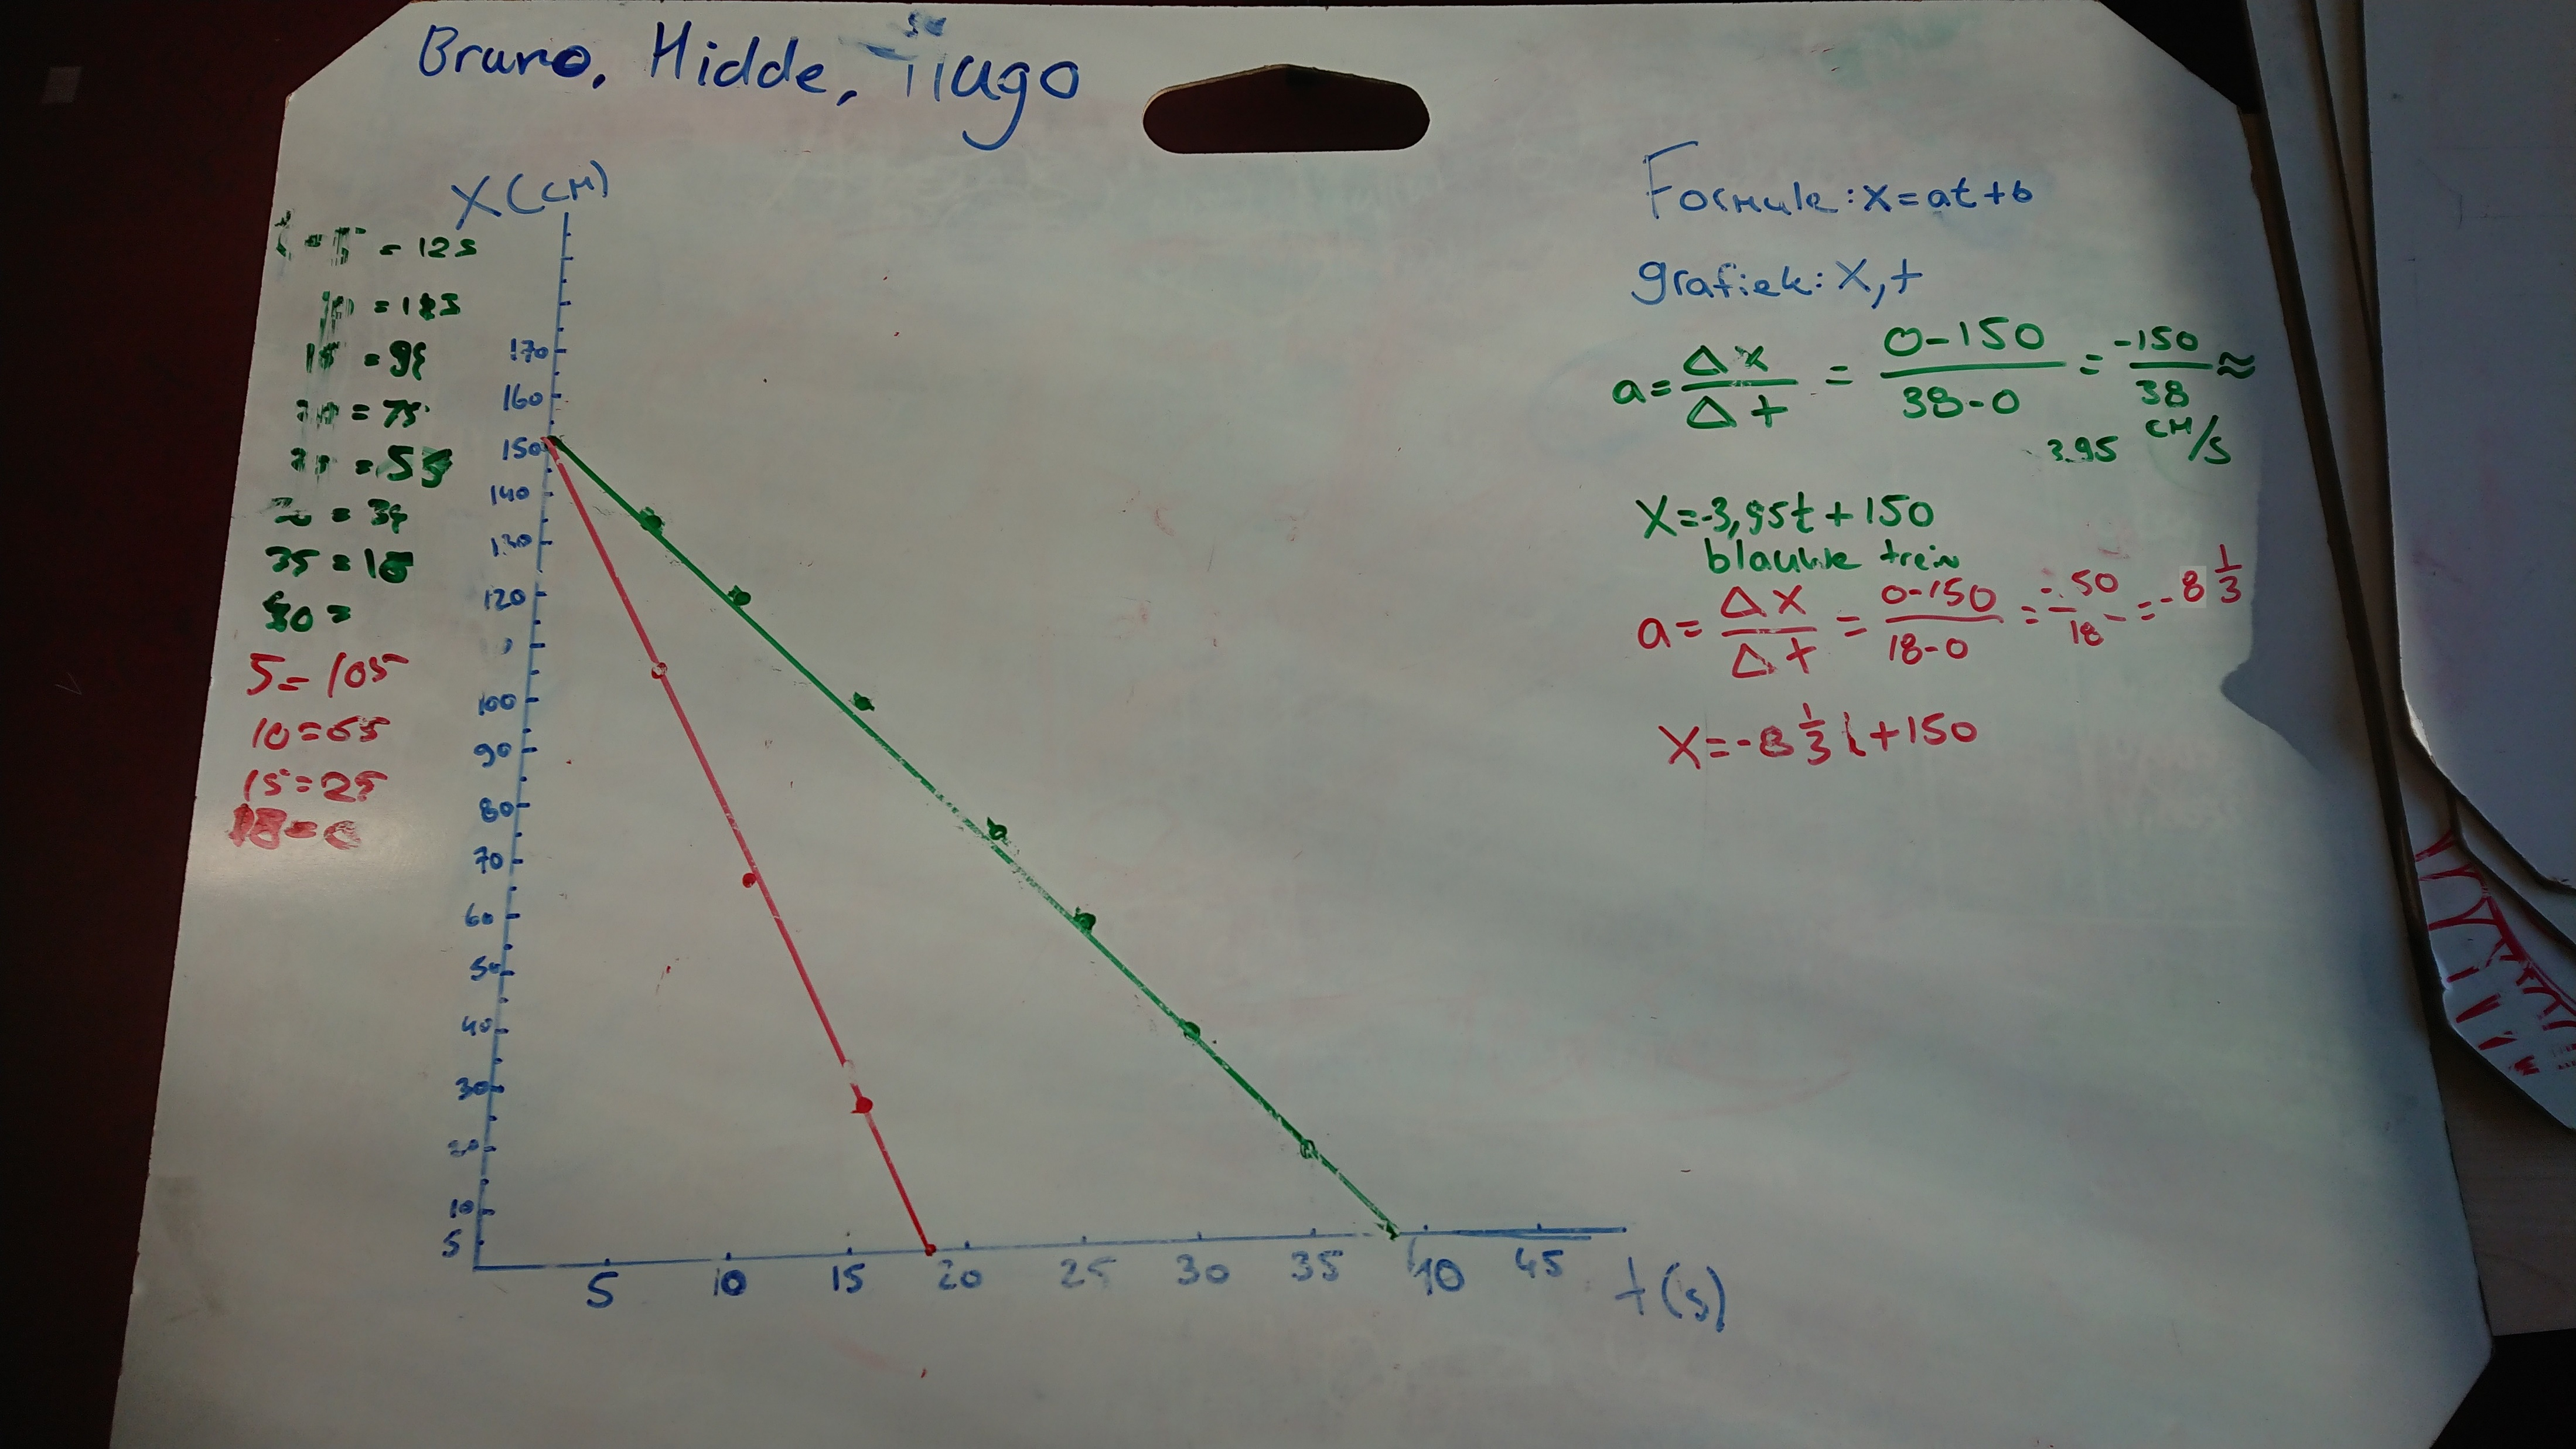 Bruno, Hidde, Tiago
X (cm)
= 125
= 115
15 = 95
= 75
= 55
= 34
35 = 18
40 =
5 = 105
10 = 65
15 = 25
18 = 0
170
160
150
140
130
120
100
90
80
70
60
50
40
30
20
10
5
5 10 15 20 25 30 35 40 45 t(s)
Formule: x = at + b
grafiek: x, t
a = Δx/Δt = 0-150/38-0 = -150/38 ≈
-3.95 cm/s
X = -3,95t + 150
blauwe trein
a = Δx/Δt = 0-150/18-0 = -150/18 = -8 1/3
X = -8 1/3 t + 150